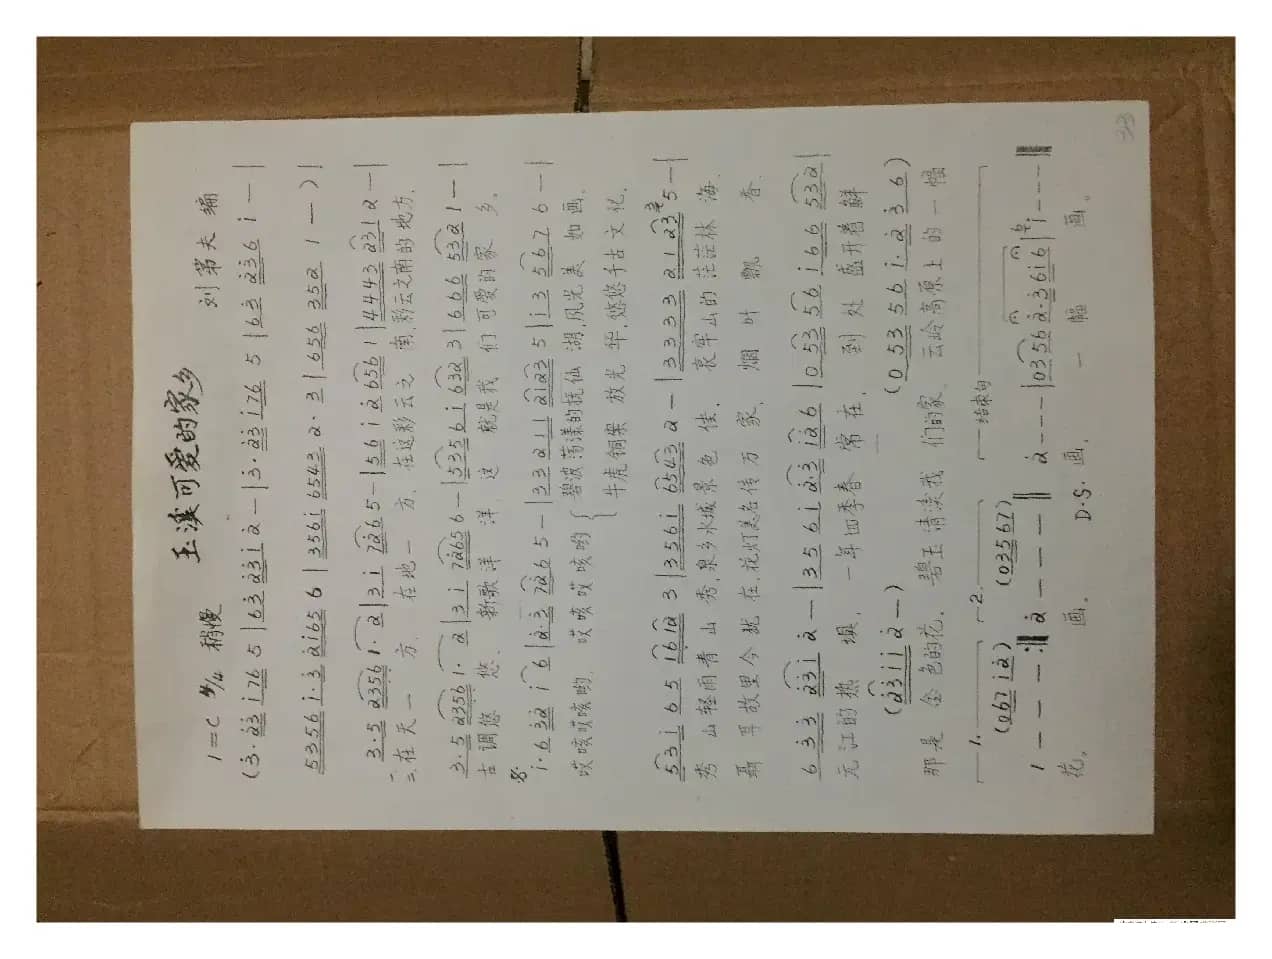 玉溪可爱的家乡
1=C 4/4 稍慢 刘第夫 编
(3·23 176 5 | 63 231 2 — | 3·23 176 5 | 63 236 1 — |
5356 1·3 2165 6 | 3561 6543 2·3 | 656 352 1 — ) |
3·5 2356 1·2 | 31 7265 — | 5612 6561 | 4443 2312 — |
一、二、在天一方, 在地一方, 在这彩云之南,彩云之南的地方,
3·5 2356 1·2 | 31 7265 6 — | 53561 632 3 | 666 532 1 — |
古调悠悠, 新歌洋洋, 这就是我们可爱的家乡。
1·6 32 16 | 2·3 726 5 — | 33211 2123 5 | 13 567 6 — |
哎咳哎咳哟, 哎咳哎咳哟 碧波荡漾的抚仙湖,风光美如画,
牛虎铜案放光华,悠悠千古文化。
531 65 161 3 | 3561 6543 2 — | 3333 21235 — |
秀山轻雨青山秀,泉乡水城景色佳, 哀牢山的茫茫林海,
聂耳故里今犹在,花灯美名传万家, 烟叶飘香,
633 231 2 — | 3561 2·3 126 | 053 56 166 532 |
元江的热坝, 一年四季春常在, 到处盛开着鲜
(2311 2 —) (053 556 1236)
那是金色的花。 碧玉清溪我们的家, 云岭高原上的一幅
1. 2. 结束句
(067 12) (03567)
1 — — — :‖ 2 — — — ‖ 2 — — — | 0356 2·3 616 | 1 — — — ‖
花, 画。 D.S. 画, 一幅画。
33